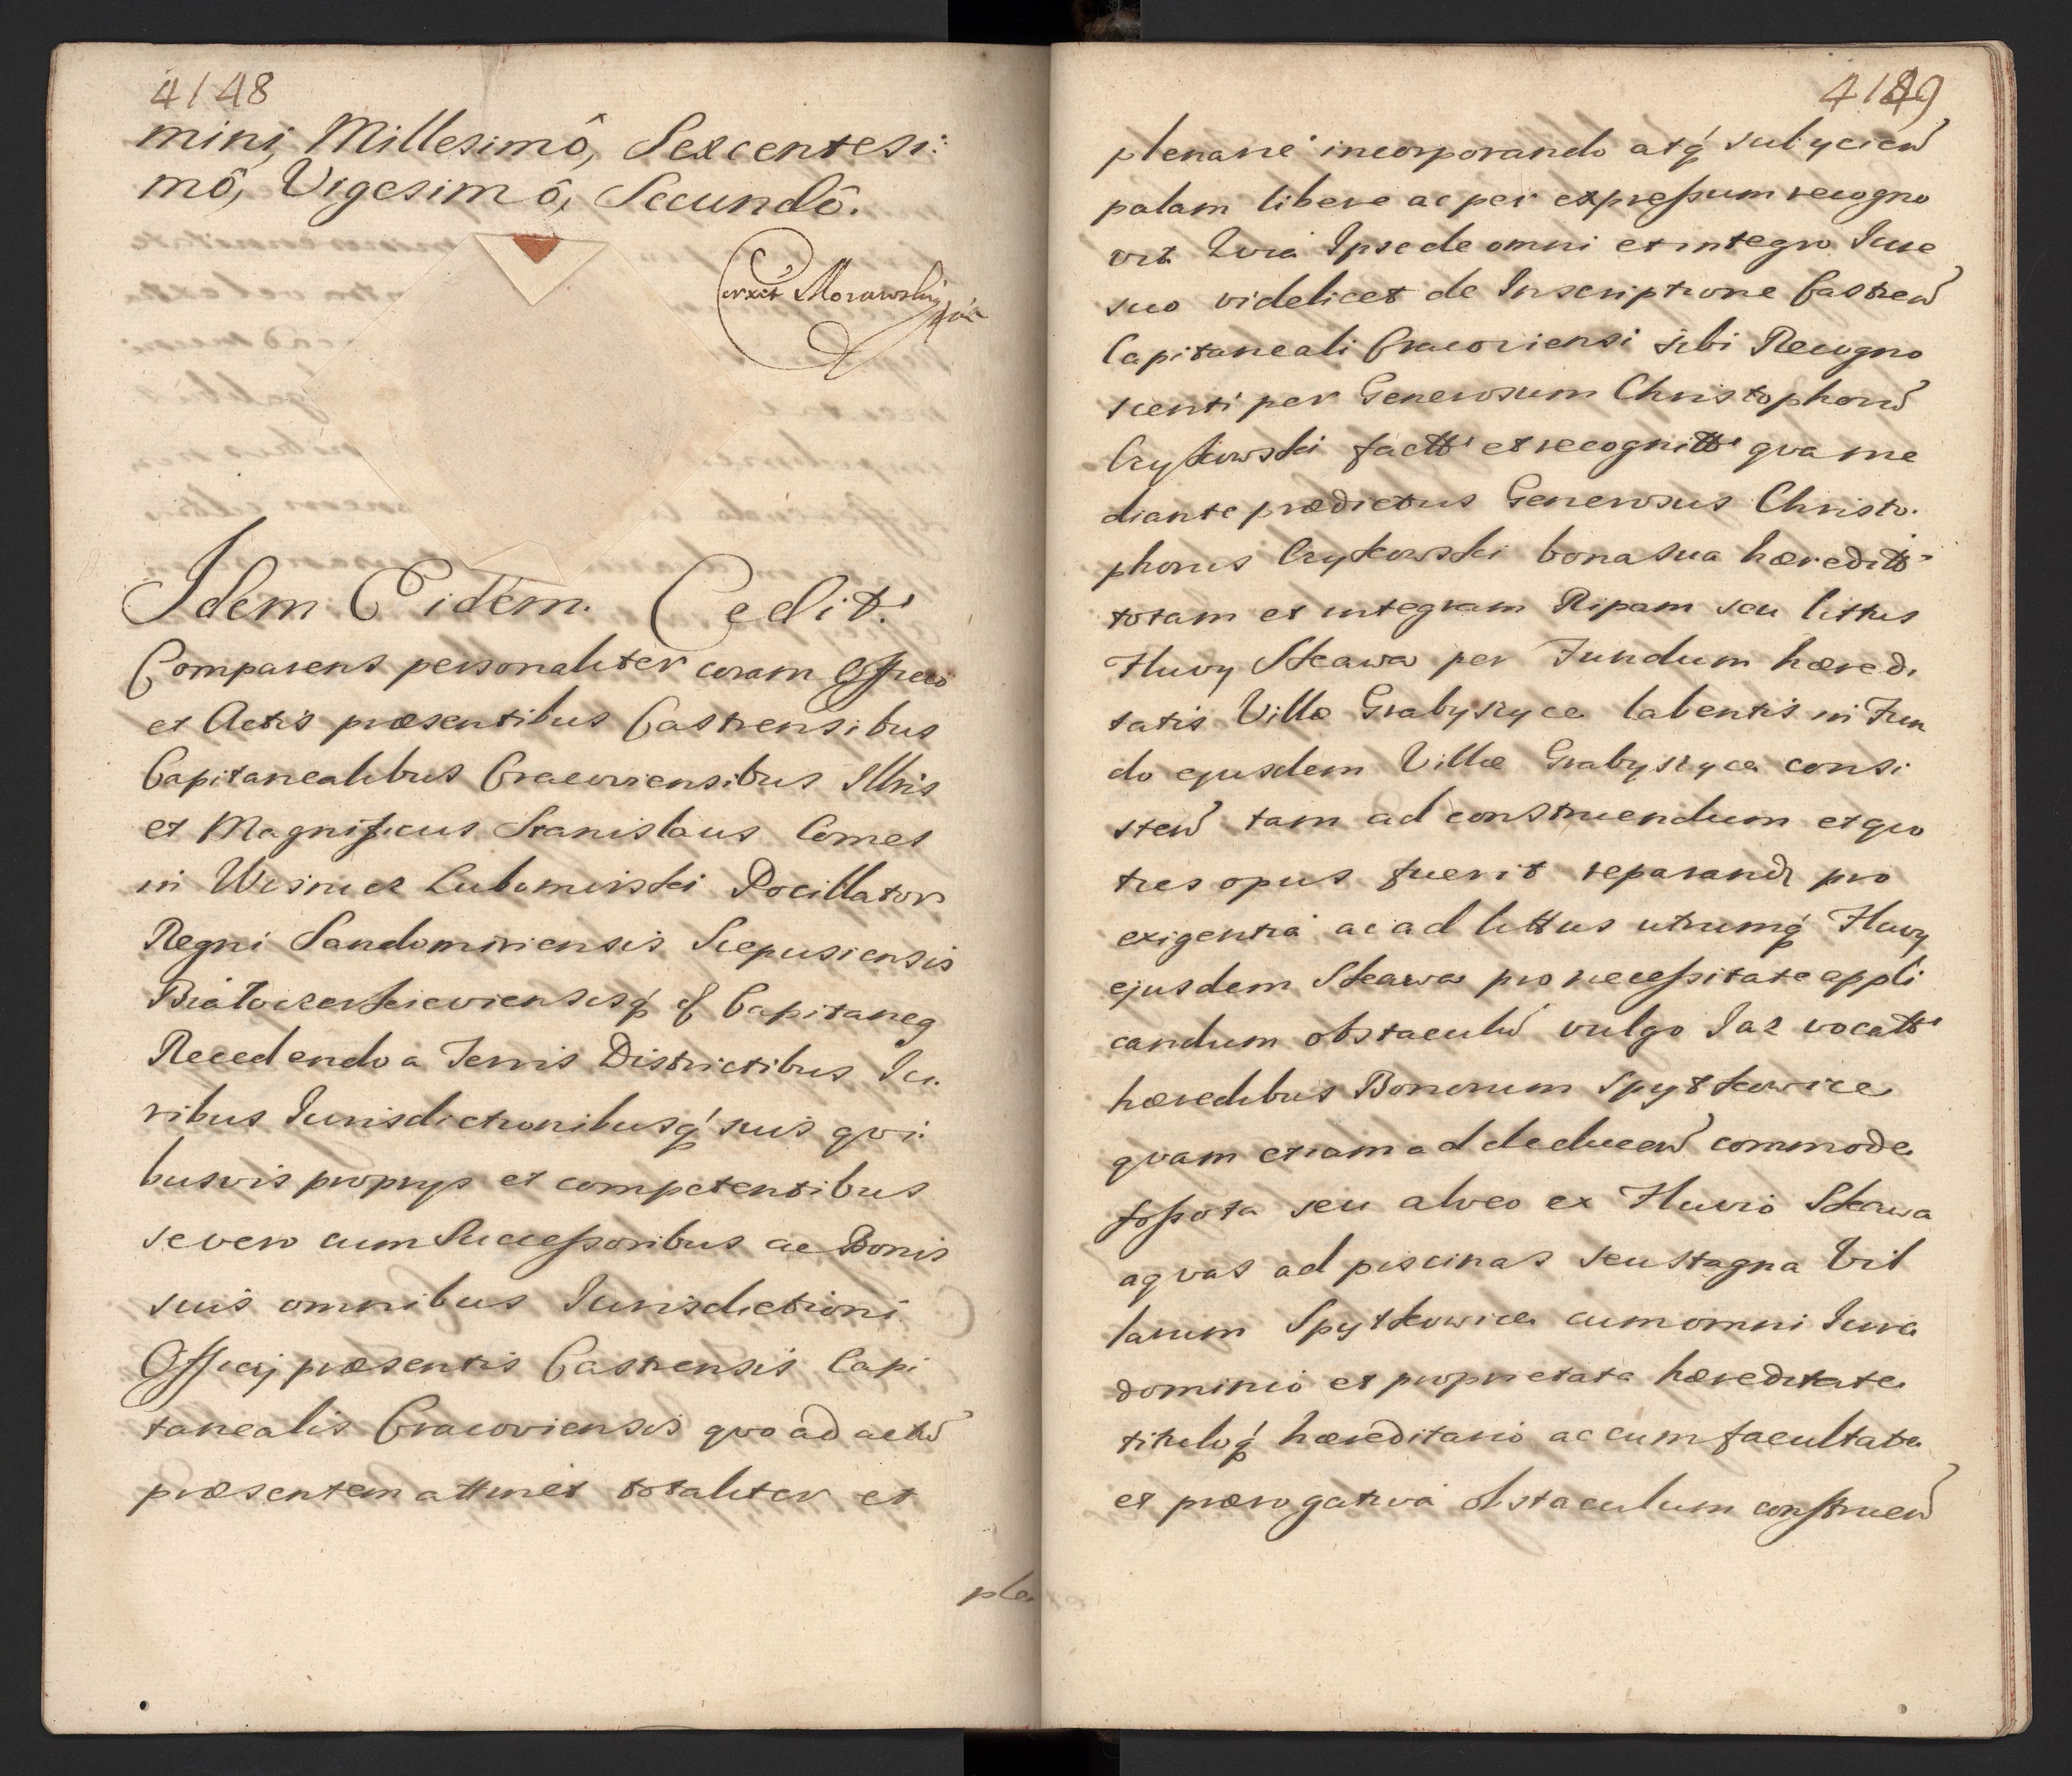 4148
mini, Millesimô, Sexcentesi:
mô, Vigesimô, Secundô.
Correxit Morawski
Idem Eidem. Cedit.
Comparens personaliter coram Officio
et Actis præsentibus Castrensibus
Capitanealibus Cracoviensibus Illris
et Magnificus Stanislaus Comes
in Wisnicz Lubomirski Pocillator
Regni Sandomiriensis Scepusiensis
Białocerkieviensisq́ Capitaneq
Recedendo a Terris Districtibus Iu.
ribus Iurisdictionibusq́ suis qvi.
busvis proprys et competentibus
se vero cum Successoribus ac Bonis
suis omnibus Iurisdictioni
Officij præsentis Castrensis Capi
tanealis Cracoviensis qvo ad actũ
præsentem attinet totaliter et
ple
4149
plenarie incorporando atq́ subycien̄
palam libere ac per expressum recogno
vit Qvia Ipse de omni et integro Iure
suo videlicet de Inscriptione Castren̄
Capitaneali Cracoviensi sibi Recogno
scenti per Generosum Christophorũ
Czykowski factt et recognitt qva me
diante prædictus Generosus Christo.
phorus Czykowski bona sua hæreditt
totam et integram Ripam seu littus
Fluvy Skawa per Fundum hæredi
tatis Villæ Grabyszyce labentis in Fun
do ejusdem Villæ Grabyszyce consi
sten̄ tam ad construendum et qvo
ties opus fuerit reparand pro
exigentia ac ad littus utrumq́ Fluvy
ejusdem Skawa pro necessitate appli
candum obstaculũ vulgo Iaz vocatt
hæredibus Bonorum Spytkowice
qvam etiam ad deducen̄ commode
fossata seu alveo ex Fluvio Skawa
aqvas ad piscinas seu stagna Vil
larum Spytkowice cum omni Iure
dominio et proprietate hæreditate
tituloq́ hæreditario ac cum facultate
et prærogativa obstaculum construen̄